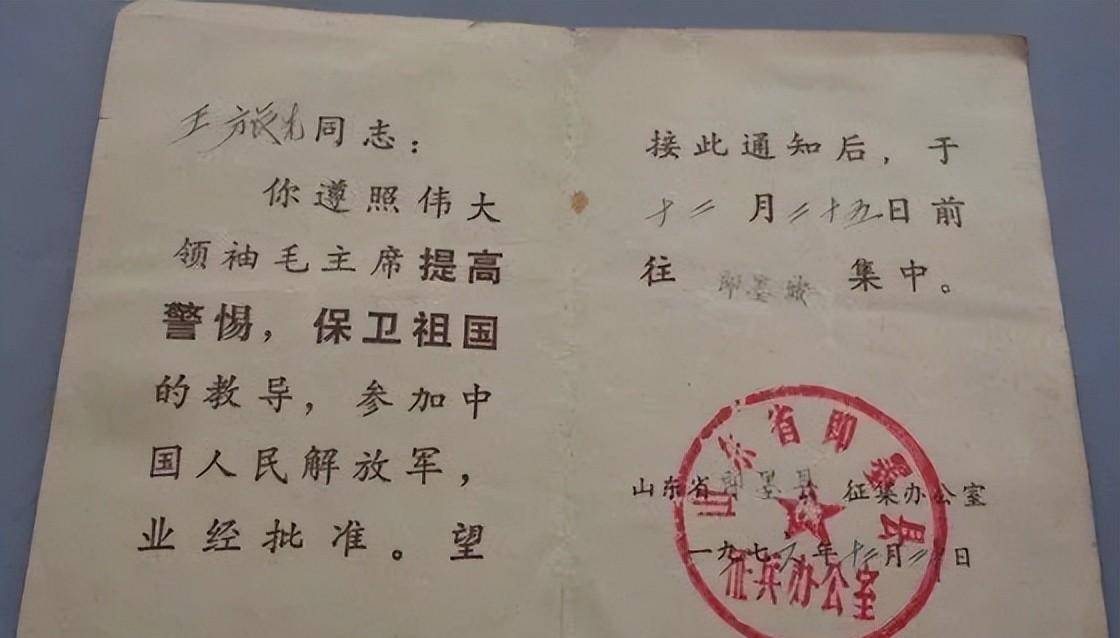 王 同志：
你遵照伟大
领袖毛主席提高
警惕，保卫祖国
的教导，参加中
国人民解放军，
业经批准。望
接此通知后，于
十二月二十五日前
往 即墨 集中。
山东省即墨县 征集办公室
一九七 年十二月二 日
山东省即墨县
征兵办公室